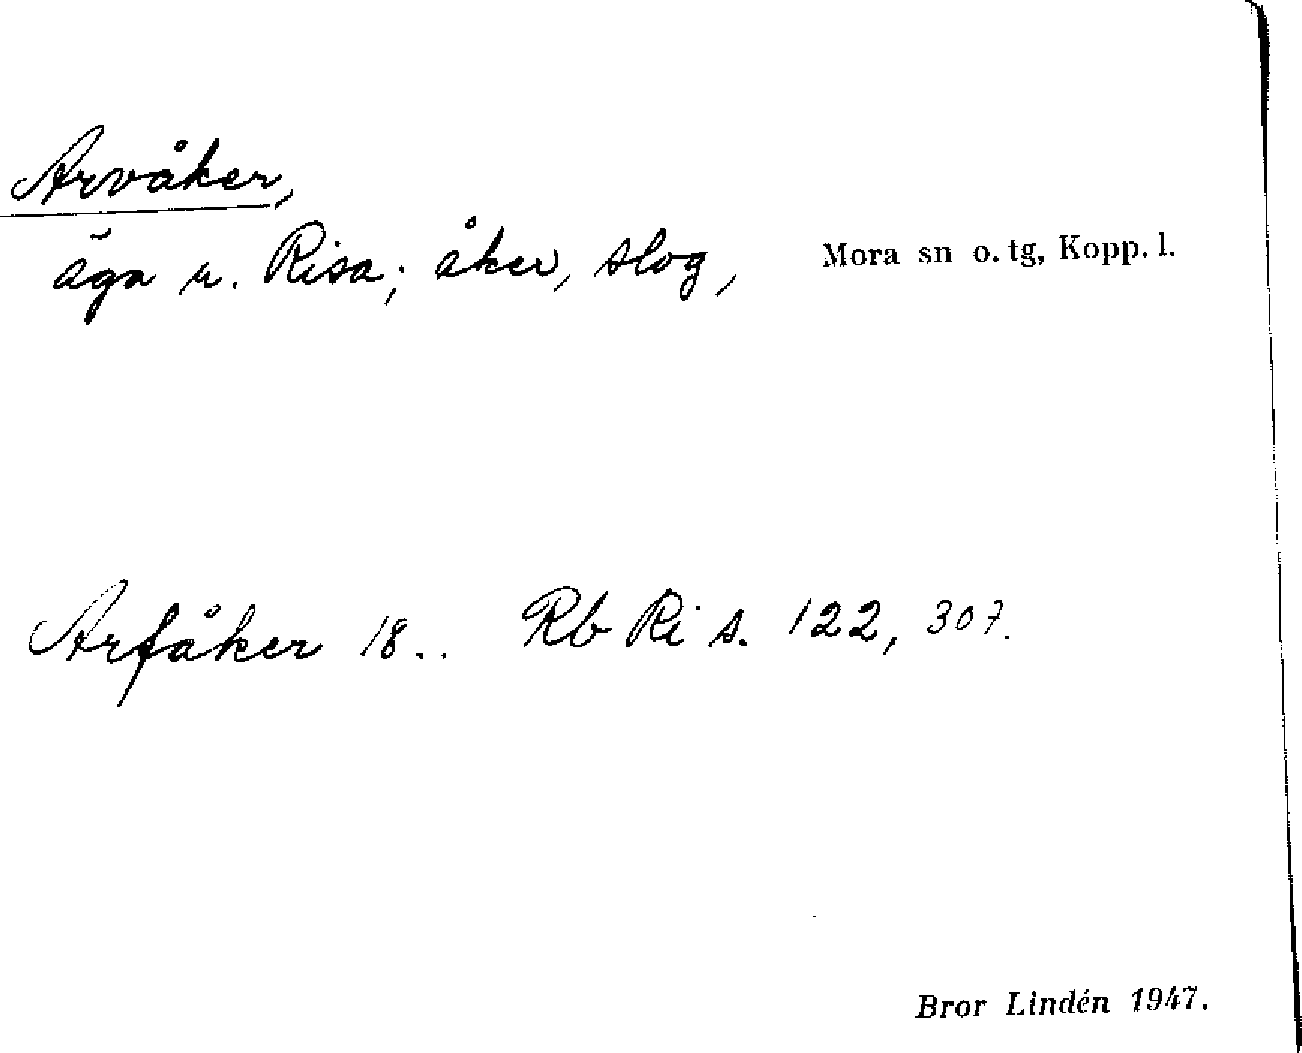 Arvåker,
äga u. Risa; åker, slog, Mora sn o. tg, Kopp. l.
Arfåker 18.. Rb Ri s. 122, 307.
Bror Lindén 1947.